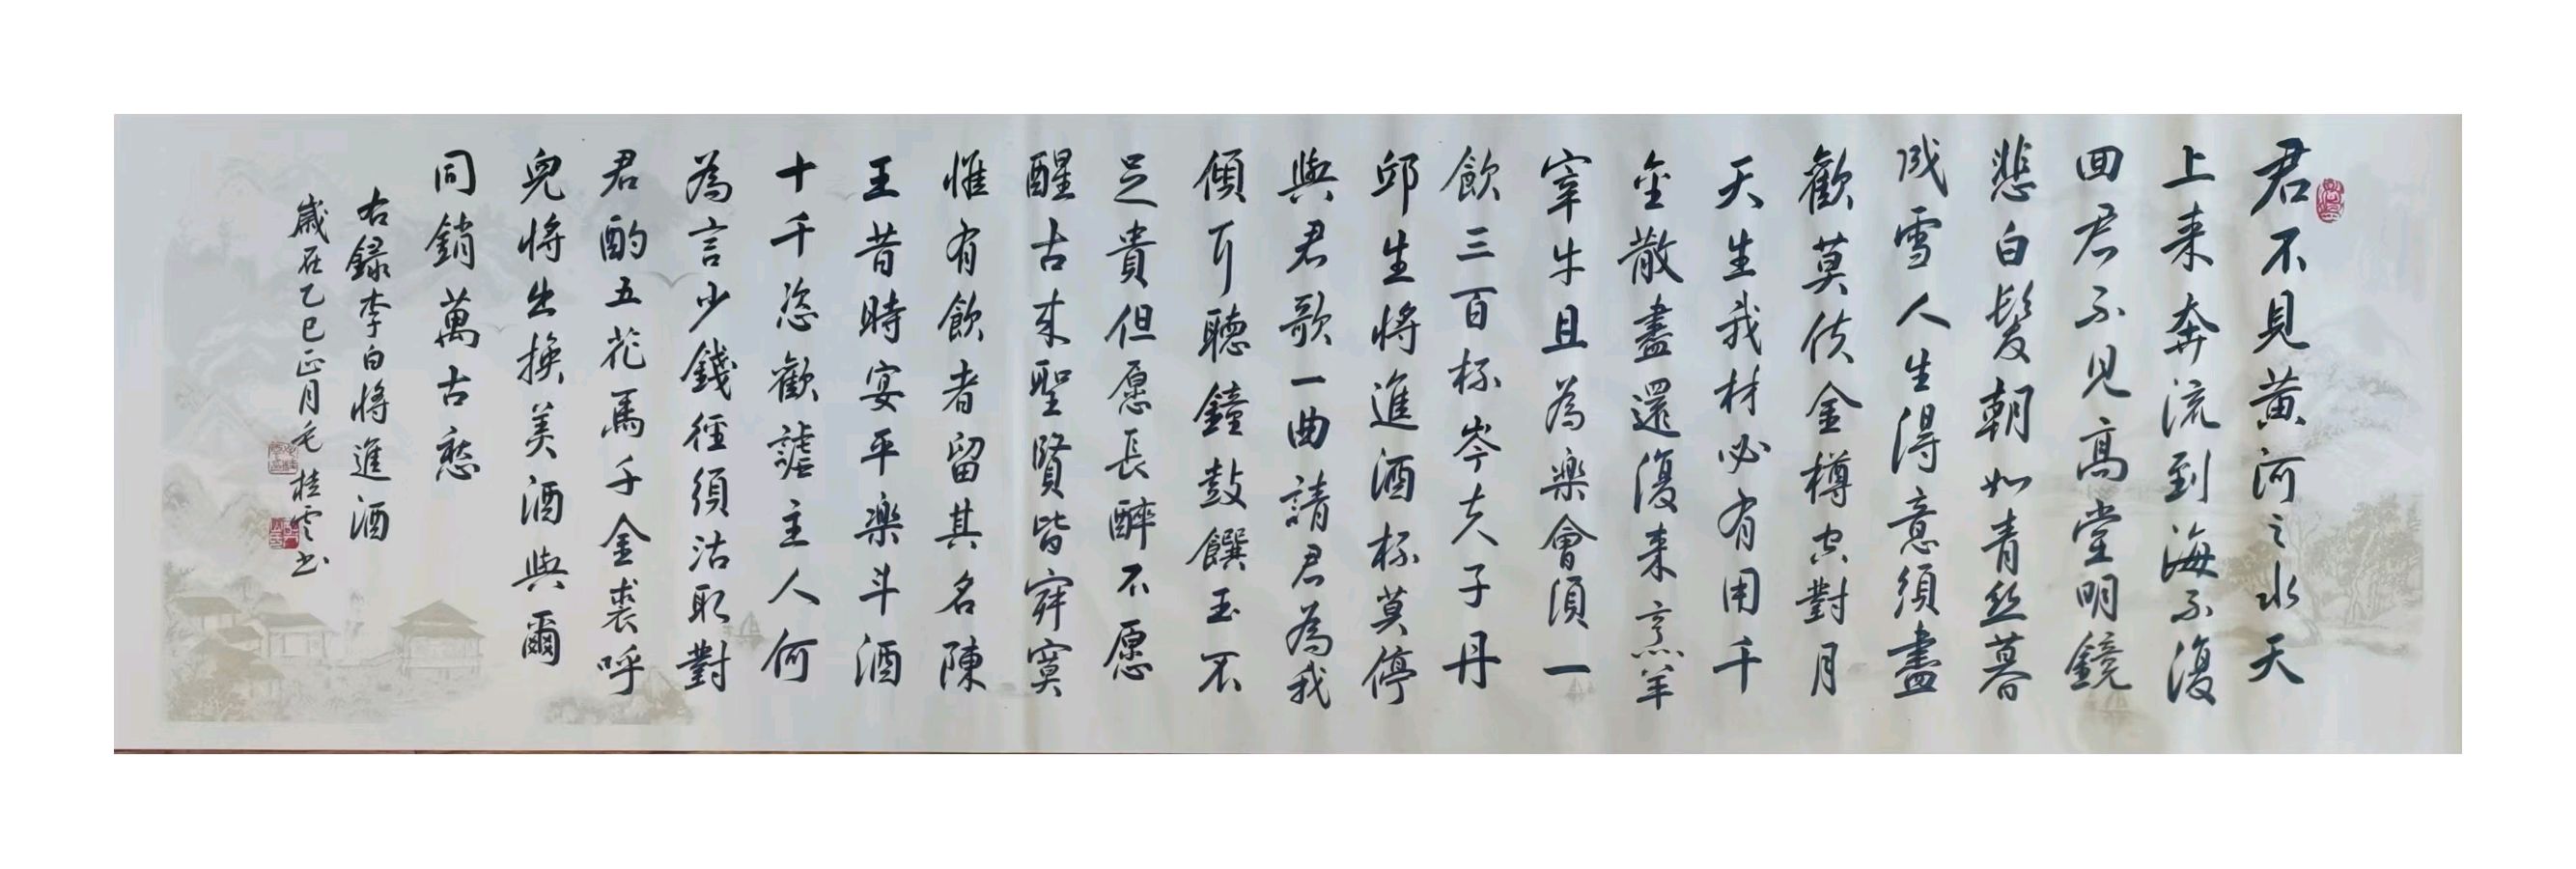 君不見黄河之水天
上来奔流到海不復
回君不見高堂明鏡
悲白髮朝如青丝暮
成雪人生得意須盡
歡莫使金樽空對月
天生我材必有用千
金散盡還復来烹羊
宰牛且為樂會須一
飲三百杯岑夫子丹
邱生將進酒杯莫停
與君歌一曲請君為我
傾耳聽鐘鼓饌玉不
足貴但愿長醉不愿
醒古来聖賢皆寂寞
惟有飲者留其名陳
王昔時宴平樂斗酒
十千恣歡謔主人何
為言少錢徑須沽取對
君酌五花馬千金裘呼
兒將出換美酒與爾
同銷萬古愁
右録李白將進酒
歲在乙巳正月毛桂雲书